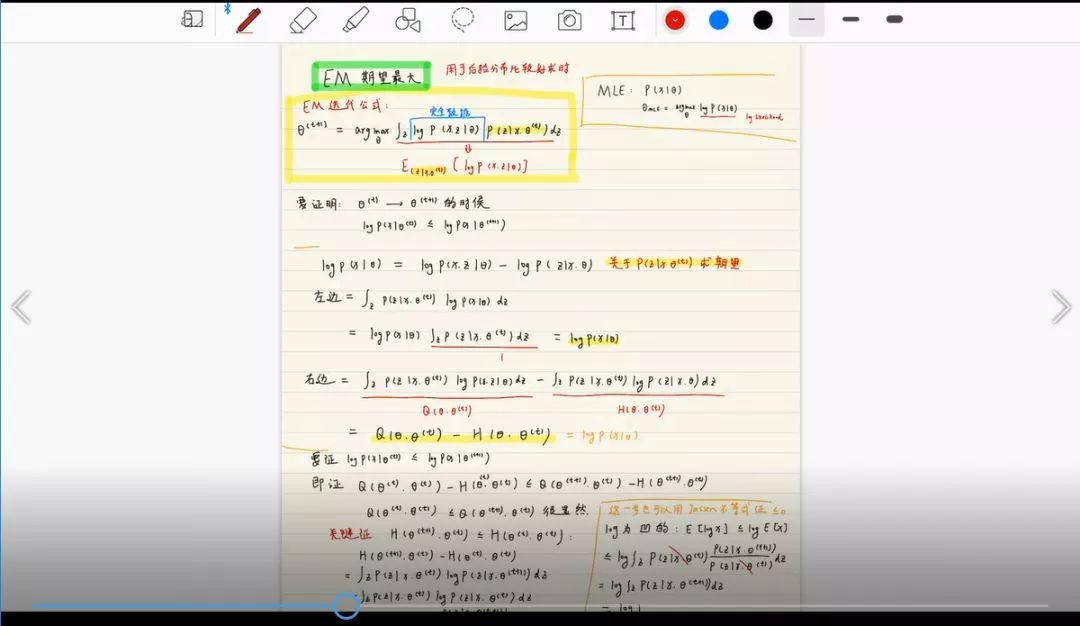 EM 期望最大
用于后验分布比较好求时
EM 迭代公式:
完全数据
θ^(t+1) = argmax_θ ∫_z log P(x.z|θ) P(z|x.θ^(t)) dz
E_(z|x.θ^(t)) [log P(x.z|θ)]
MLE: P(x|θ)
θ_MLE = argmax_θ log P(x|θ)
log likelihood
要证明: θ^(t) → θ^(t+1) 的时候
log P(x|θ^(t)) ≤ log P(x|θ^(t+1))
log P(x|θ) = log P(x.z|θ) - log P(z|x.θ) 关于 P(z|x θ^(t)) 求期望
左边 = ∫_z P(z|x.θ^(t)) log P(x|θ) dz
= log P(x|θ) ∫_z P(z|x.θ^(t)) dz = log P(x|θ)
1
右边 = ∫_z P(z|x.θ^(t)) log P(x.z|θ) dz - ∫_z P(z|x.θ^(t)) log P(z|x.θ) dz
Q(θ.θ^(t)) H(θ.θ^(t))
= Q(θ.θ^(t)) - H(θ.θ^(t)) = log P(x|θ)
要证 log P(x|θ^(t)) ≤ log P(x|θ^(t+1))
即证 Q(θ^(t).θ^(t)) - H(θ^(t).θ^(t)) ≤ Q(θ^(t+1).θ^(t)) - H(θ^(t+1).θ^(t))
Q(θ^(t).θ^(t)) ≤ Q(θ^(t+1).θ^(t)) 很显然.
关键证 H(θ^(t+1).θ^(t)) ≤ H(θ^(t).θ^(t)):
H(θ^(t+1).θ^(t)) - H(θ^(t).θ^(t))
= ∫_z P(z|x.θ^(t)) log P(z|x.θ^(t+1)) dz
- ∫_z P(z|x.θ^(t)) log P(z|x.θ^(t)) dz
这一步也可以用 Jensen 不等式证 ≤0
log 为 凹 的: E[log x] ≤ log E[x]
≤ log ∫_z P(z|x.θ^(t)) P(z|x.θ^(t+1)) / P(z|x.θ^(t)) dz
= log ∫_z P(z|x.θ^(t+1)) dz
= log 1
T